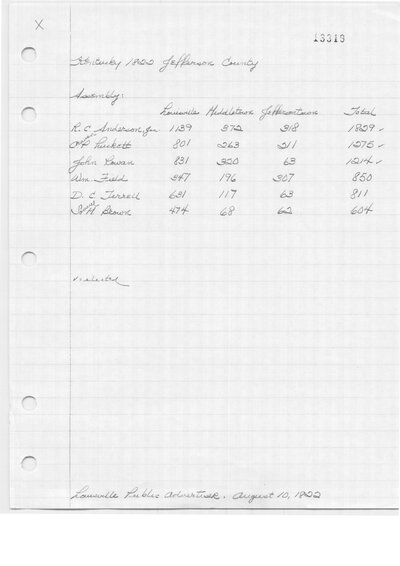 X
13313
Kentucky 1822 Jefferson County
Assembly:
Louisville Middletown Jeffersontown Total
R. C. Anderson, Jr. 1139 372 318 1829 ✓
Puckett 801 263 211 1275 ✓
John Rowan 831 320 63 1214 ✓
Wm. Field 347 196 307 850
D. C. Terrell 631 117 63 811
Brown 474 68 62 604
✓ - elected
Louisville Public Advertiser. August 10, 1822